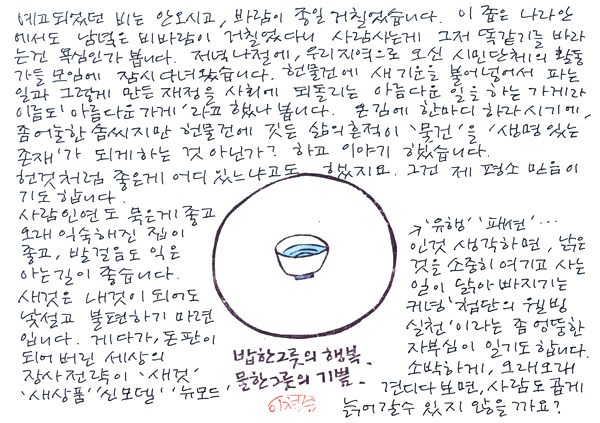 예고되었던 비는 안오시고, 바람이 종일 거칠었습니다. 이 좁은 나라안
에서도 남녘은 비바람이 거칠었다니 사람사는게 그저 똑같기를 바라
는건 욕심인가 봅니다. 저녁나절에, 우리지역으로 오신 시민단체의 활동
가들 모임에 잠시다녀왔습니다. 헌물건에 새기운을 불어넣어서 파는
일과 그렇게 만든 재정을 사회에 되돌리는 아름다운 일을 하는 가게라
이름도 '아름다운가게'라고 했나 봅니다. 온김에 한마디 하라시기에,
좀어눌한 솜씨지만 헌물건에 깃든 삶의흔적이 '물건'을 '생명 있는
존재'가 되게하는 것 아닌가? 하고 이야기 했습니다.
헌것처럼 좋은게 어디있느냐고도 했지요. 그건 제 평소 믿음이
기도합니다.
사람인연도 묵은게좋고
오래 익숙해진 집이
좋고, 발걸음도 익은
아는길이 좋습니다.
새것은 내것이되어도
낯설고 불편하기 마련
입니다. 게다가, 돈판이
되어버린 세상의
장사전략이 '새것'
'새상품' '신모델' '뉴모드'
'유행' '패션' …
인것 생각하면, 낡은
것을 소중히 여기고 사는
일이 닳아빠지기는
커녕 '첨단의 웰빙
실천'이라는 좀 엉뚱한
자부심이 일기도합니다.
소박하게, 오래오래
견디다보면, 사람도곱게
늙어갈수 있지 않을까요?
밥한그릇의 행복
물한그릇의 기쁨.
이철수